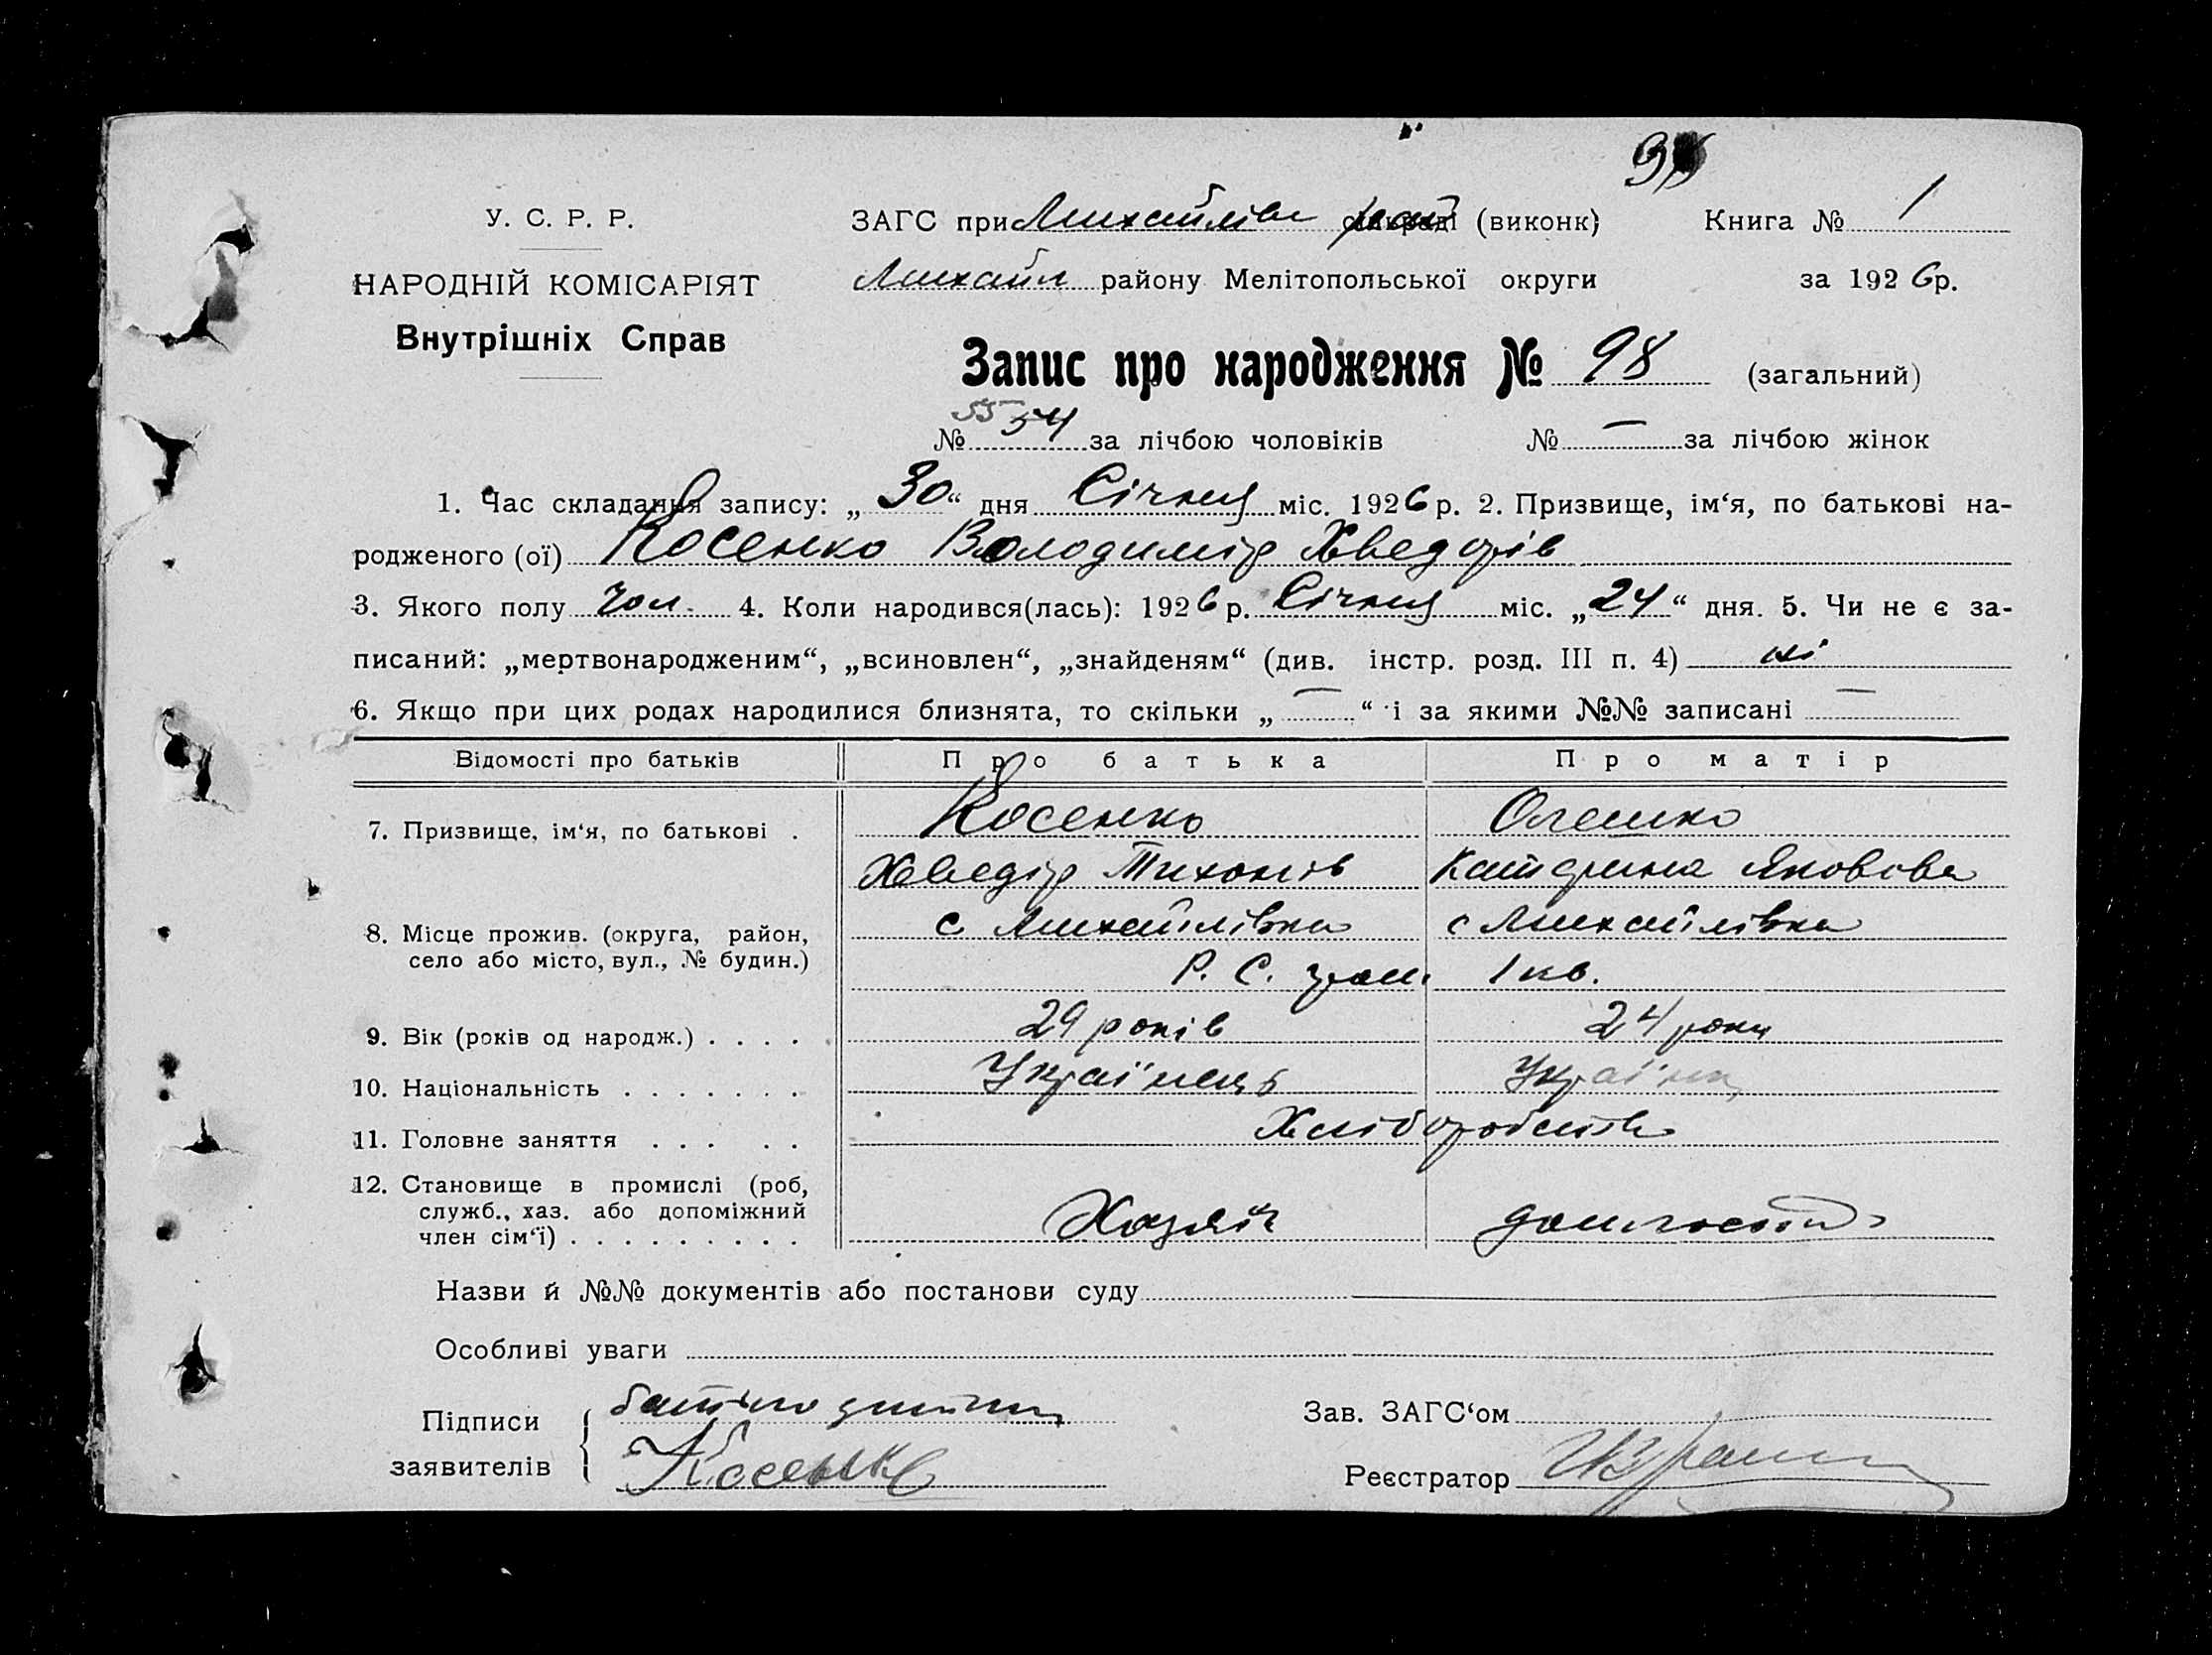 У. С. Р. Р.
НАРОДНІЙ КОМІСАРІЯТ
Внутрішніх Справ
ЗАГС при Михайлівс рай (виконк)
Книга № 1
Михайл району Мелітопольської округи
за 1926р.
Запис про народження № 98 (загальний)
55
№ 54 за лічбою чоловіків № — за лічбою жінок
1. Час складання запису: „30“ дня Січня міс. 1926 р. 2. Призвище, ім‘я, по батькові на-
родженого (ої) Косенко Володимір Хведорів
3. Якого полу чол. 4. Коли народився(лась): 1926 р. Січня міс. „24“ дня. 5. Чи не є за-
писаний: „мертвонародженим“, „всиновлен“, „знайденям“ (див. інстр. розд. III п. 4) ні
6. Якщо при цих родах народилися близнята, то скільки „—“ і за якими №№ записані —
Відомості про батьків Про батька Про матір
7. Призвище, ім‘я, по батькові . Косенко Олешко
Хведір Тихонів Катерина Яковова
8. Місце прожив. (округа, район, с Михайлівка с Михайлівка
село або місто, вул., № будин.)
Р. С. гром. 1 кв.
9. Вік (років од народж.) . . . . 29 років 24 роки
10. Національність . . . . . . . Українець Українка
11. Головне заняття . . . . . Хліборобство
12. Становище в промислі (роб,
служб., хаз. або допоміжний
член сім‘ї) . . . . . . . . . Хазяїн
Назви й №№ документів або постанови суду
Особливі уваги
Підписи
заявителів
батько дитини
Косенко
Зав. ЗАГС‘ом
Реєстратор